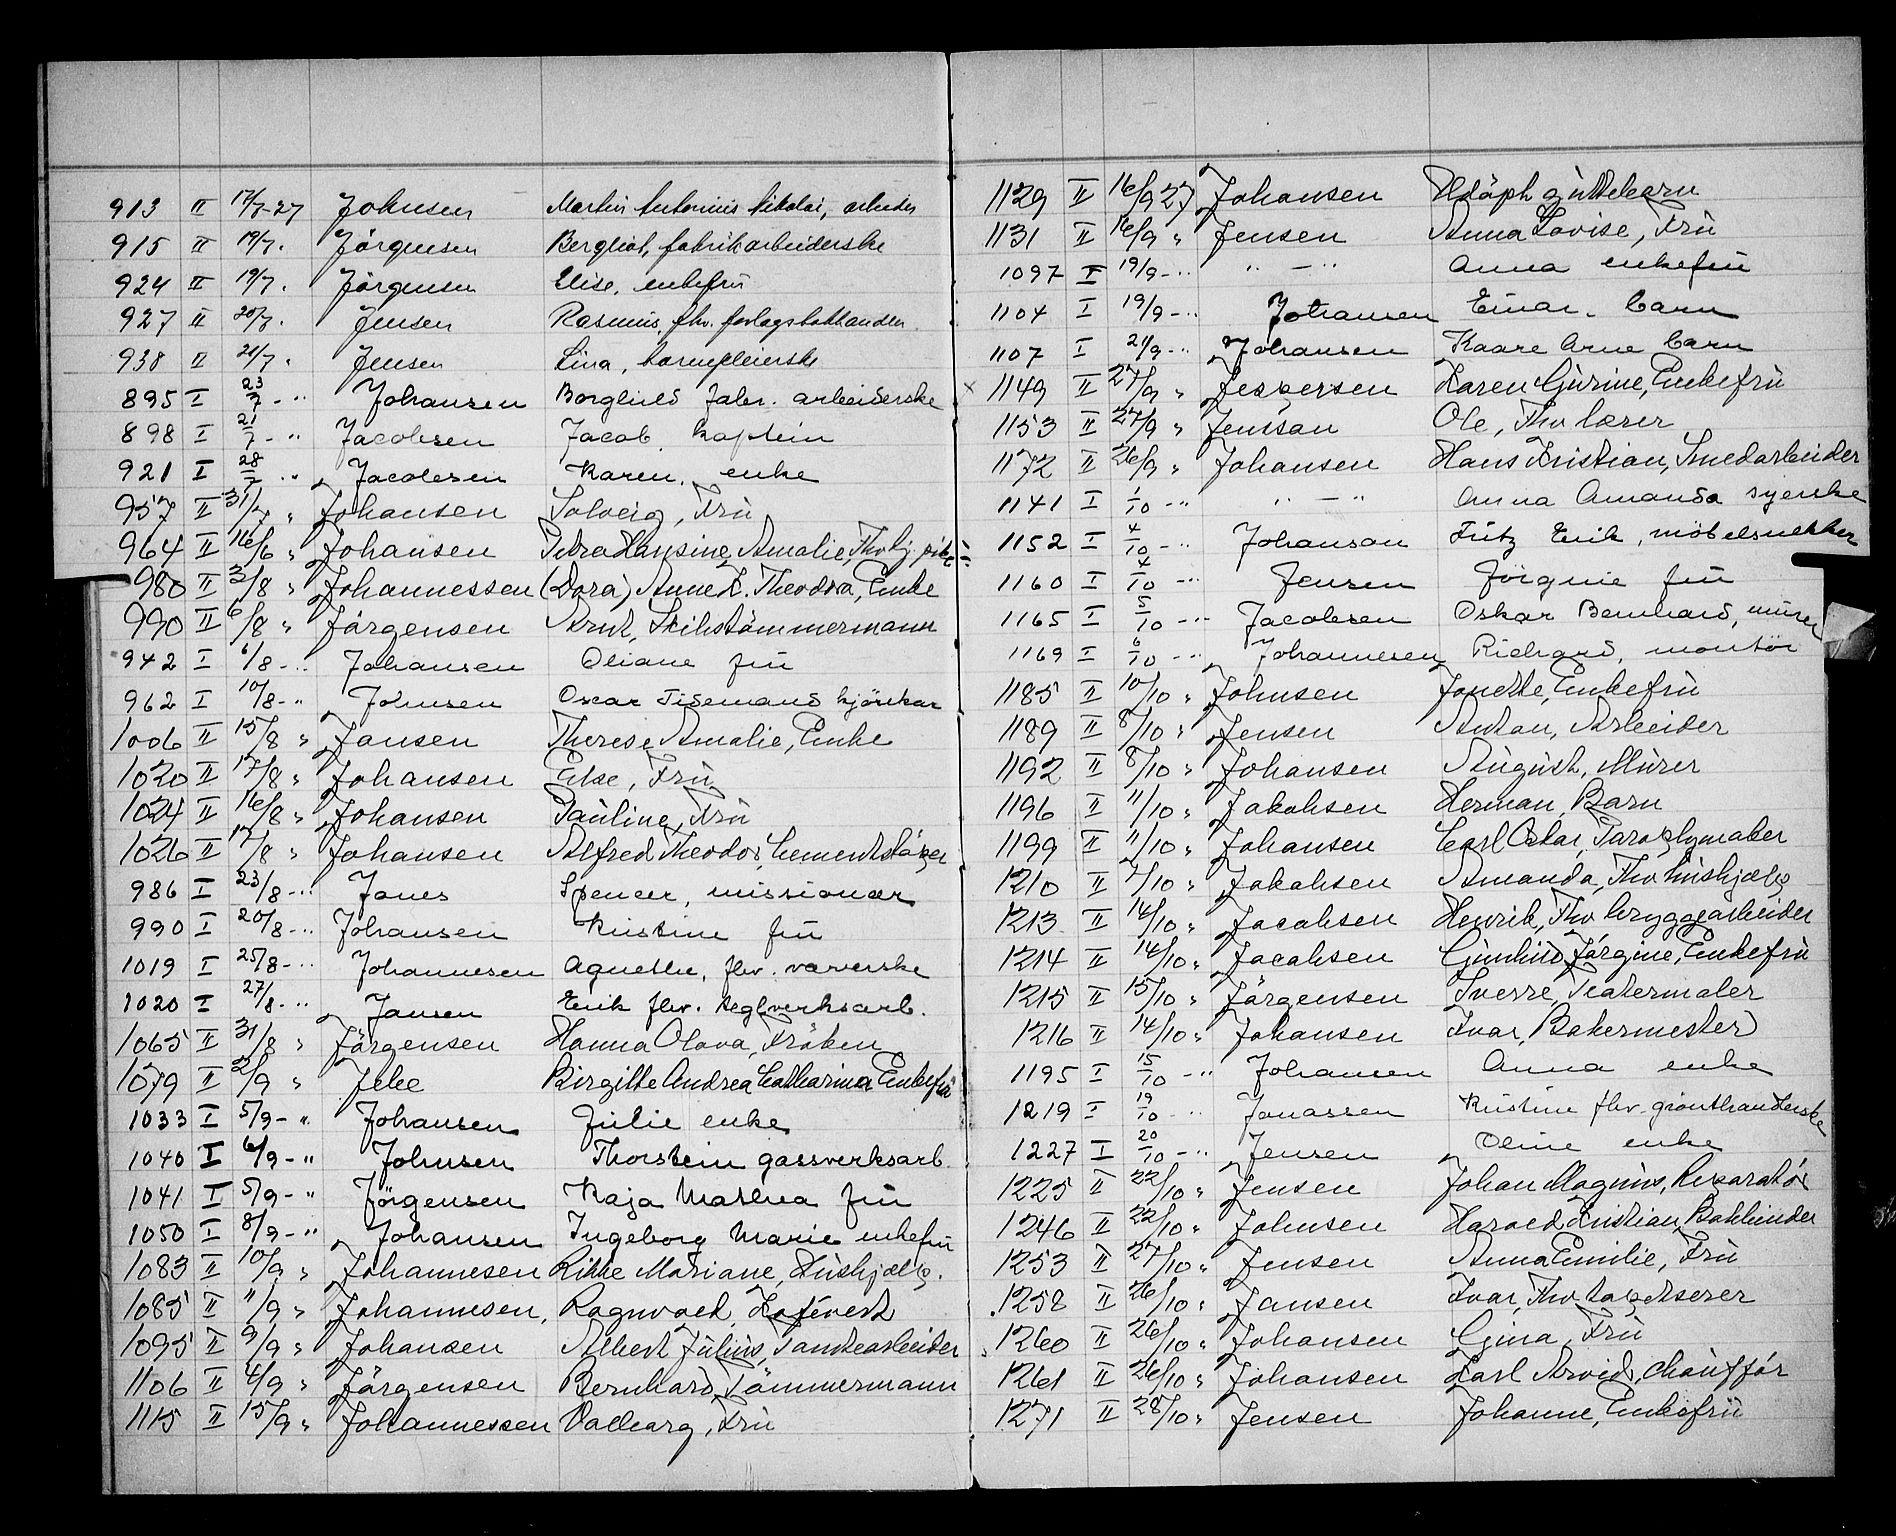 913 II 17/7-27 Johnsen Martin Antonius Nikolai, arbeider
915 II 19/7. Jörgensen Bergliot, fabrikarbeiderske
924 II 19/7. Jörgensen Elise, enkefru
927 II 20/7. Jensen Rasmus, fhv.
938 II 20/7. Jensen Lina, barnepleierske
895 I 23/7 - " Johansen Borghild fabr. arbeiderske
898 I 21/7 - " Jacobsen Jacob kaptein
921 I 28/7 " Jacobsen Karen, enke
957 II 31/7 " Johansen Solveig, Fru
964 II 16/6 " Johansen Petra Hansine Amalie, Fhv tj. pike
980 II 3/8 " Johannessen (Dora) Anne K. Theodora, Enke
990 II 6/8 " Jörgensen Arnt, Skibstömmermann
942 I 6/8 - " Johansen Oliane fru
962 I 10/8 - " Johnsen Oscar Tidemand kjörekar
1006 II 15/8 " Jansen Therese Amalie, Enke
1020 II 17/8 " Johansen Else, Fru
1024 II 16/8 " Johansen Pauline, Fru
1026 II 17/8 " Johansen Alfred Theodor, Cementstöper
986 I 23/8 - " Jones Spencer, missionær
990 I 20/8 - " Johansen Kristine fru
1019 I 25/8 - " Johannesen Agnethe, fhv. væverske
1020 I 27/8 - " Jansen Erik fhv. teglverksarb.
1065 II 31/8 " Jörgensen Hanna Olava, Fröken
1079 II 2/9 " Jebe Birgitte Andrea Catharina Enkefru
1033 I 5/9 - " Johansen Julie enke
1040 I 6/9 - " Johnsen Thorstein gassverksarb.
1041 I 5/9 - " Jörgensen Kaja Mathea fru
1050 I 8/9 - " Johansen Ingeborg Marie enkefru
1083 II 10/9 " Johannesen Rikke Mariane, Hushjælp.
1085 II 11/9 " Johannesen, Ragnvald,
1095 II 9/9 " Johansen Albert Julius, Tomtearbeider
1106 II 4/9 " Jörgensen Bernhard, Tömmermann
1115 II 15/9 " Johannessen Valborg, Fru
1129 II 16/9 27 Johansen Udöpt guttebarn
1131 II 16/9 " Jensen Anna Lovise, Fru
1097 I 19/9 - " " - " Anna enkefru
1104 I 19/9 - " Johansen Einar. barn
1107 I 21/9 - " Johansen Kaare Arne barn
x 1149 II 24/9 " Jespersen Karen Gurine, Enkefru
1153 II 24/9 " Jenssan Ole, Fhv lærer
1172 II 26/9 " Johansen Hans Kristian, Smedarbeider
1141 I 1/10 - " " - " Anna Amanda syerske
1152 I 4/10 - " Johanson Fritz Erik, möbelsnekker
1160 I 4/10 - " Jensen Jörgine fru
1165 I 5/10 - " Jacobsen Oskar Bernhard, murer
1169 I 6/10 - " Johannesen Richard, montör
1185 II 10/10 " Johnsen Jonette, Enkefru
1189 II 8/10 " Jensen Anton, Arbeider
1192 II 8/10 " Johansen August, Murer
1196 II 11/10 " Jakobsen Herman, Barn
1199 II 11/10 " Johansen Carl Oskar, Paraplymaker
1210 II 7/10 " Jakobsen Amanda, Fhv hushjælp
1213 II 14/10 " Jacobsen Henrik, Fhv bryggearbeider
1214 II 14/10 " Jacobsen Gunhild Jörgine, Enkefru
1215 II 15/10 " Jörgensen Sverre, Teatermaler
1216 II 14/10 " Johansen Ivar, Bakermester
1195 I 15/10 - " Johansen Anna enke
1219 I 19/10 - " Jonassen Kristine fhv. grönthandlerske
1227 I 20/10 - " Jensen Oline enke
1225 II 22/10 " Jensen Johan Magnus, Reparatör
1246 II 22/10 " Johnsen Harald Kristian, Bokbinder
1253 II 27/10 " Jensen Anna Emilie, Fru
1258 II 26/10 " Jansen Ivar, Fhv tapetserer
1260 II 26/10 " Johansen Gina, Fru
1261 II 26/10 " Johansen Karl Arvid, Chaufför
1271 II 28/10 " Jensen Johanne, Enkefru